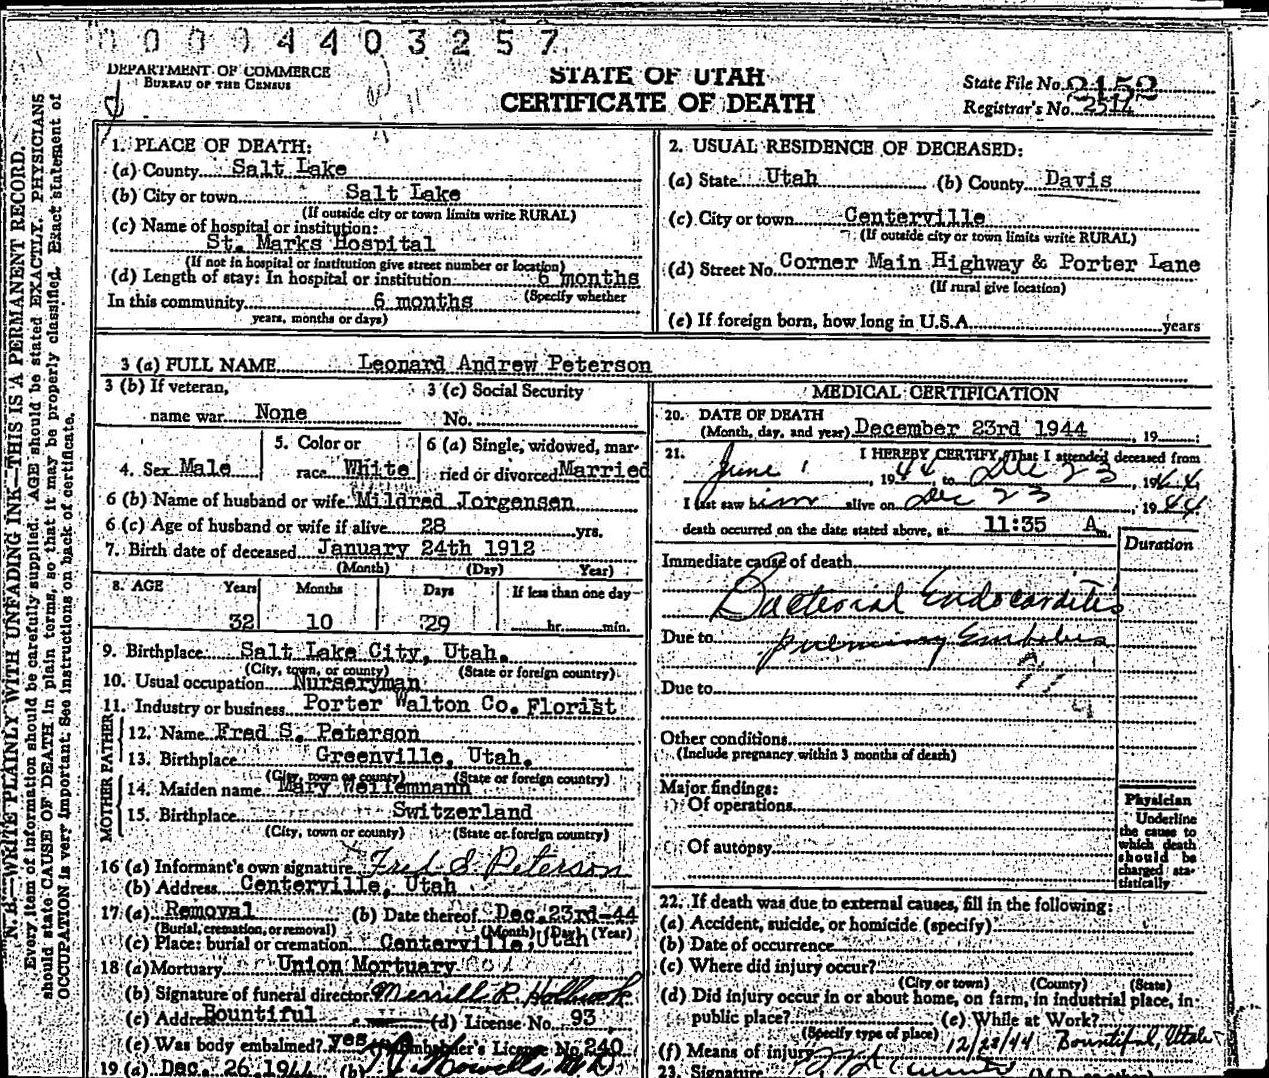 0 0 0 0 4 4 0 3 2 5 7
DEPARTMENT OF COMMERCE
BUREAU OF THE CENSUS
STATE OF UTAH
CERTIFICATE OF DEATH
State File No. 2152
Registrar's No.
N. B.—WRITE PLAINLY WITH UNFADING INK—THIS IS A PERMANENT RECORD.
Every item of information should be carefully supplied. AGE should be stated EXACTLY. PHYSICIANS
should state CAUSE OF DEATH in plain terms, so that it may be properly classified. Exact statement of
OCCUPATION is very important. See instructions on back of certificate.
1. PLACE OF DEATH:
(a) County Salt Lake
(b) City or town Salt Lake
(If outside city or town limits write RURAL)
(c) Name of hospital or institution:
St. Marks Hospital
(If not in hospital or institution give street number or location)
(d) Length of stay: In hospital or institution 6 months
(Specify whether
In this community 6 months
years, months or days)
2. USUAL RESIDENCE OF DECEASED:
(a) State Utah (b) County Davis
(c) City or town Centerville
(If outside city or town limits write RURAL)
(d) Street No. Corner Main Highway & Porter Lane
(If rural give location)
(e) If foreign born, how long in U.S.A. years
3 (a) FULL NAME Leonard Andrew Peterson
3 (b) If veteran,
name war None
3 (c) Social Security
No.
4. Sex Male
5. Color or
race White
6 (a) Single, widowed, mar-
ried or divorced Married
6 (b) Name of husband or wife Mildred Jorgensen
6 (c) Age of husband or wife if alive 28 yrs.
7. Birth date of deceased January 24th 1912
(Month) (Day) Year)
8. AGE Years Months Days If less than one day
32 10 29 hr. min.
9. Birthplace Salt Lake City, Utah.
(City, town, or county) (State or foreign country)
10. Usual occupation Nurseryman
11. Industry or business Porter Walton Co. Florist
FATHER
12. Name Fred S. Peterson
13. Birthplace Greenville, Utah.
(City, town or county) (State or foreign country)
MOTHER
14. Maiden name Mary
15. Birthplace Switzerland
(City, town or county) (State or foreign country)
16 (a) Informant's own signature Fred S. Peterson
(b) Address Centerville, Utah
17 (a) Removal (b) Date thereof Dec. 23rd-44
(Burial, cremation, or removal) (Month) (Day) (Year)
(c) Place: burial or cremation Centerville, Utah
18 (a) Mortuary Union Mortuary
(b) Signature of funeral director Merrill R. Holbrook
(c) Address Bountiful (d) License No. 93
(e) Was body embalmed? yes Embalmer's License No. 240
19 (a) Dec. 26, 1944 (b)
MEDICAL CERTIFICATION
20. DATE OF DEATH
(Month, day, and year) December 23rd 1944, 19
21. I HEREBY CERTIFY, That I attended deceased from
June 1, 1944, to Dec 23, 1944,
I last saw him alive on Dec 23, 1944
death occurred on the date stated above, at 11:35 A m.
Duration
Immediate cause of death
Bacterial Endocarditis
Due to
Due to
Other conditions
(Include pregnancy within 3 months of death)
Major findings:
Of operations
Of autopsy
Physician
Underline
the cause to
which death
should be
charged sta-
tistically
22. If death was due to external causes, fill in the following:
(a) Accident, suicide, or homicide (specify)
(b) Date of occurrence
(c) Where did injury occur?
(City or town) (County) (State)
(d) Did injury occur in or about home, on farm, in industrial place, in
public place? (e) While at Work?
(Specify type of place)
12/23/44 Bountiful, Utah
(f) Means of injury
23. Signature (M.D.